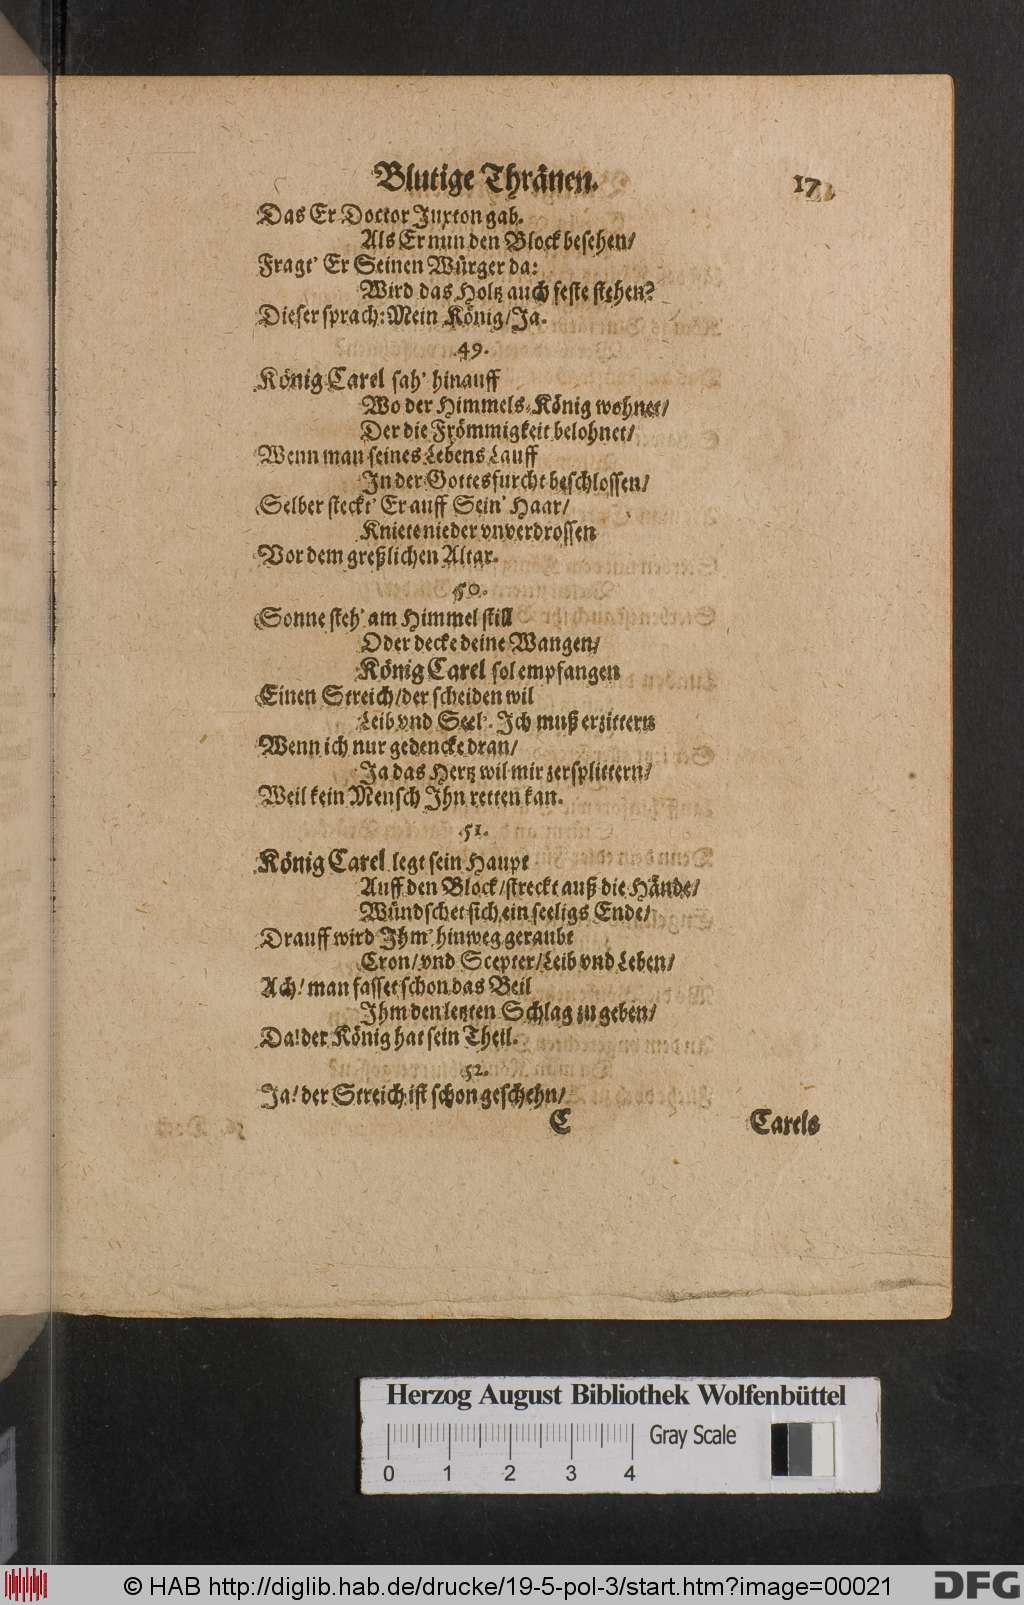 Blutige Thränen. 17
Das Er Doctor Juxton gab.
Als Er nun den Block besehen/
Fragt' Er Seinen Würger da:
Wird das Holtz auch feste stehen?
Dieser sprach: Mein König/ Ja.
49.
König Carel sah' hinauff
Wo der Himmels-König wohnet/
Der die Frömmigkeit belohnet/
Wenn man seines Lebens Lauff
In der Gottesfurcht beschlossen/
Selber steckt' Er auff Sein' Haar/
Kniete nieder vnverdrossen
Vor dem greßlichen Altar.
50.
Sonne steh' am Himmel still
Oder decke deine Wangen/
König Carel sol empfangen
Einen Streich/ der scheiden wil
Leib vnd Seel'. Ich muß erzittern
Wenn ich nur gedencke dran/
Ja das Hertz wil mir zersplittern/
Weil kein Mensch Ihn retten kan.
51.
König Carel legt sein Haupt
Auff den Block/ streckt auß die Hände/
Wündschet sich ein seeligs Ende/
Drauff wird Ihm' hinweg geraubt
Cron/ vnd Scepter/ Leib vnd Leben/
Ach! man fasset schon das Beil
Ihm den letzten Schlag zu geben/
Da! der König hat sein Theil.
52.
Ja! der Streich ist schon geschehn/
C Carels
Herzog August Bibliothek Wolfenbüttel
Gray Scale
0 1 2 3 4
© HAB http://diglib.hab.de/drucke/19-5-pol-3/start.htm?image=00021 DFG